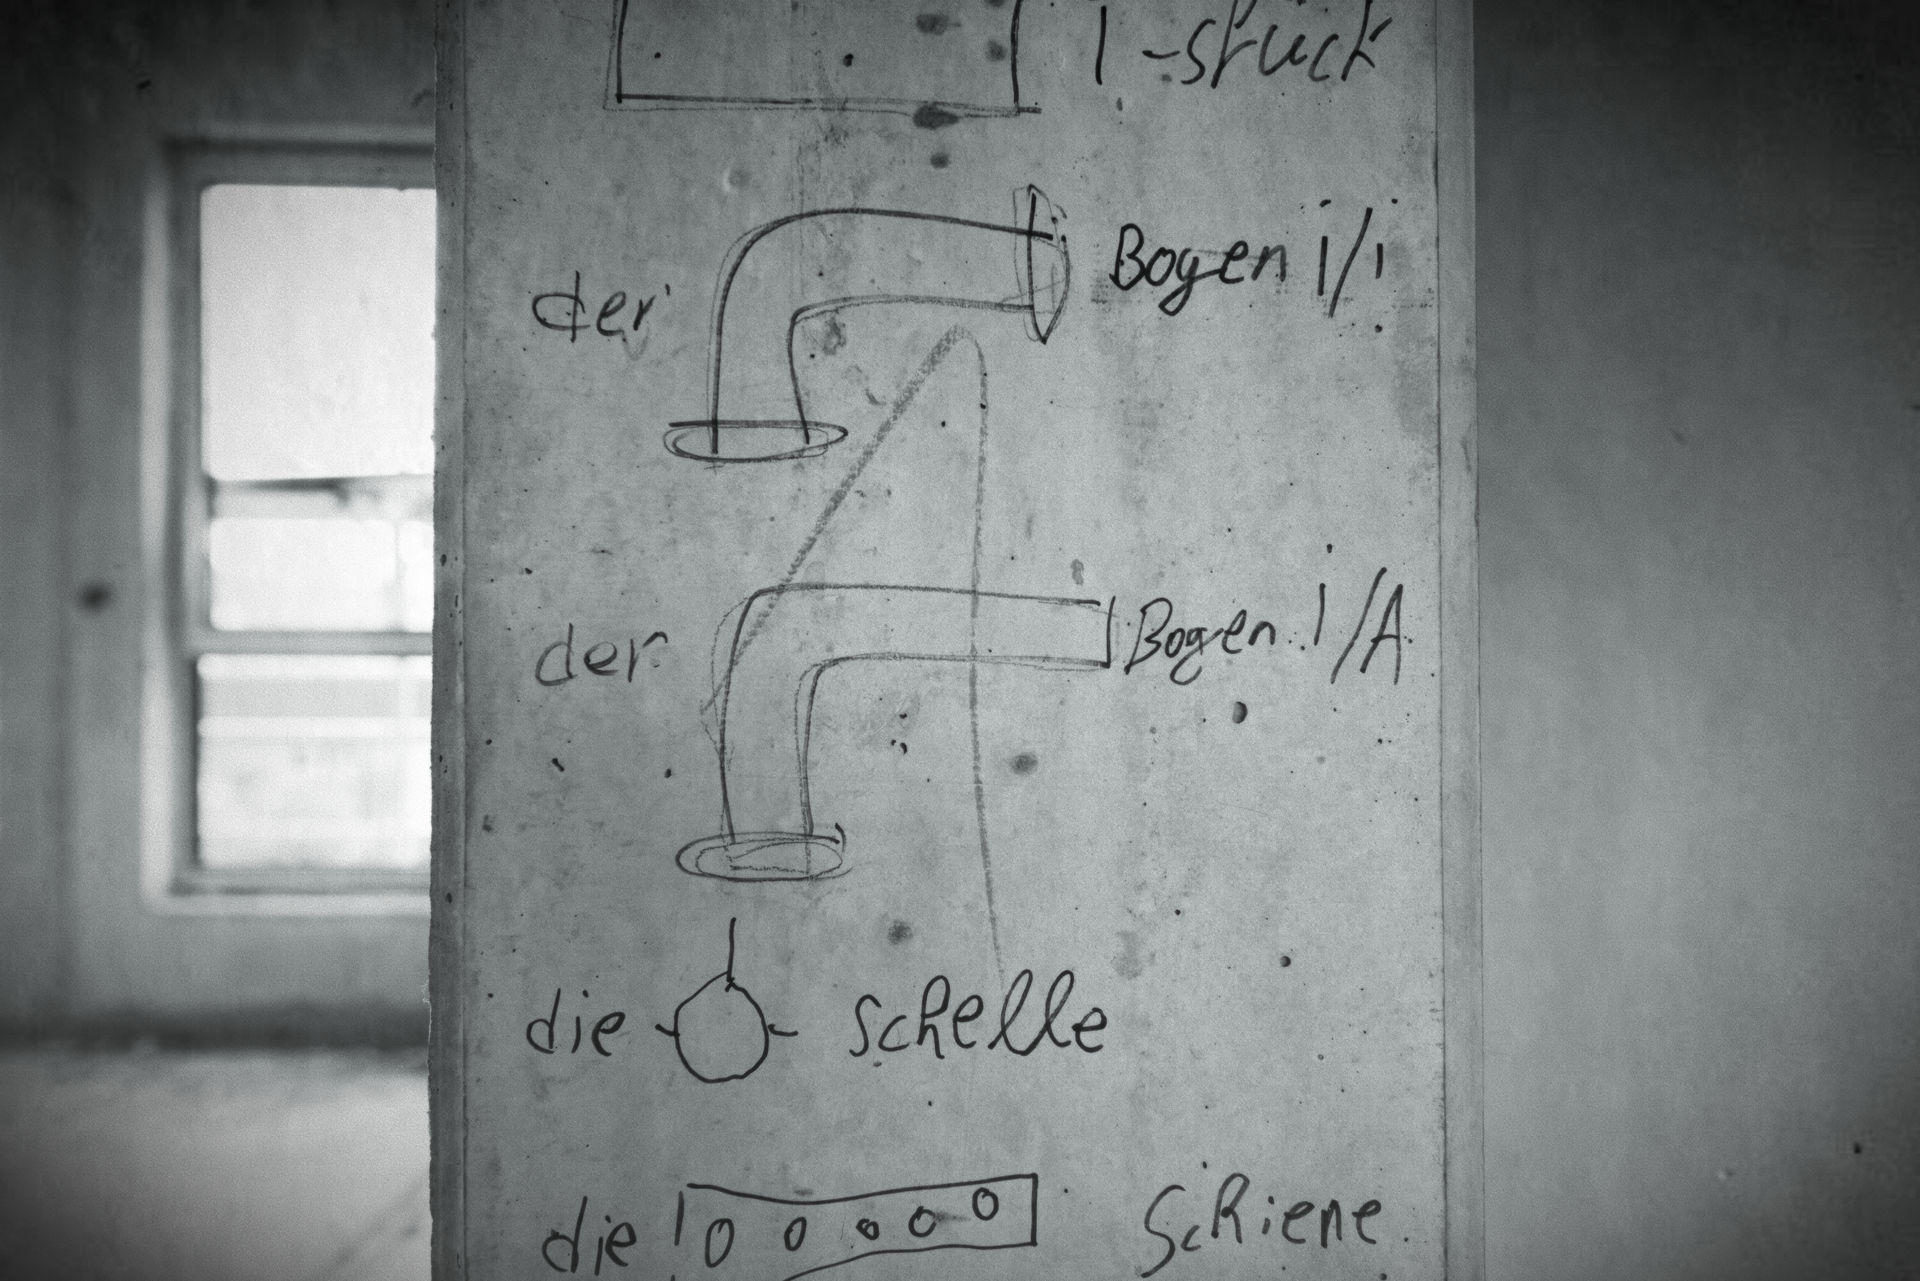 -stück
der Bogen i/i
der Bogen I/A
die schelle
die schiene